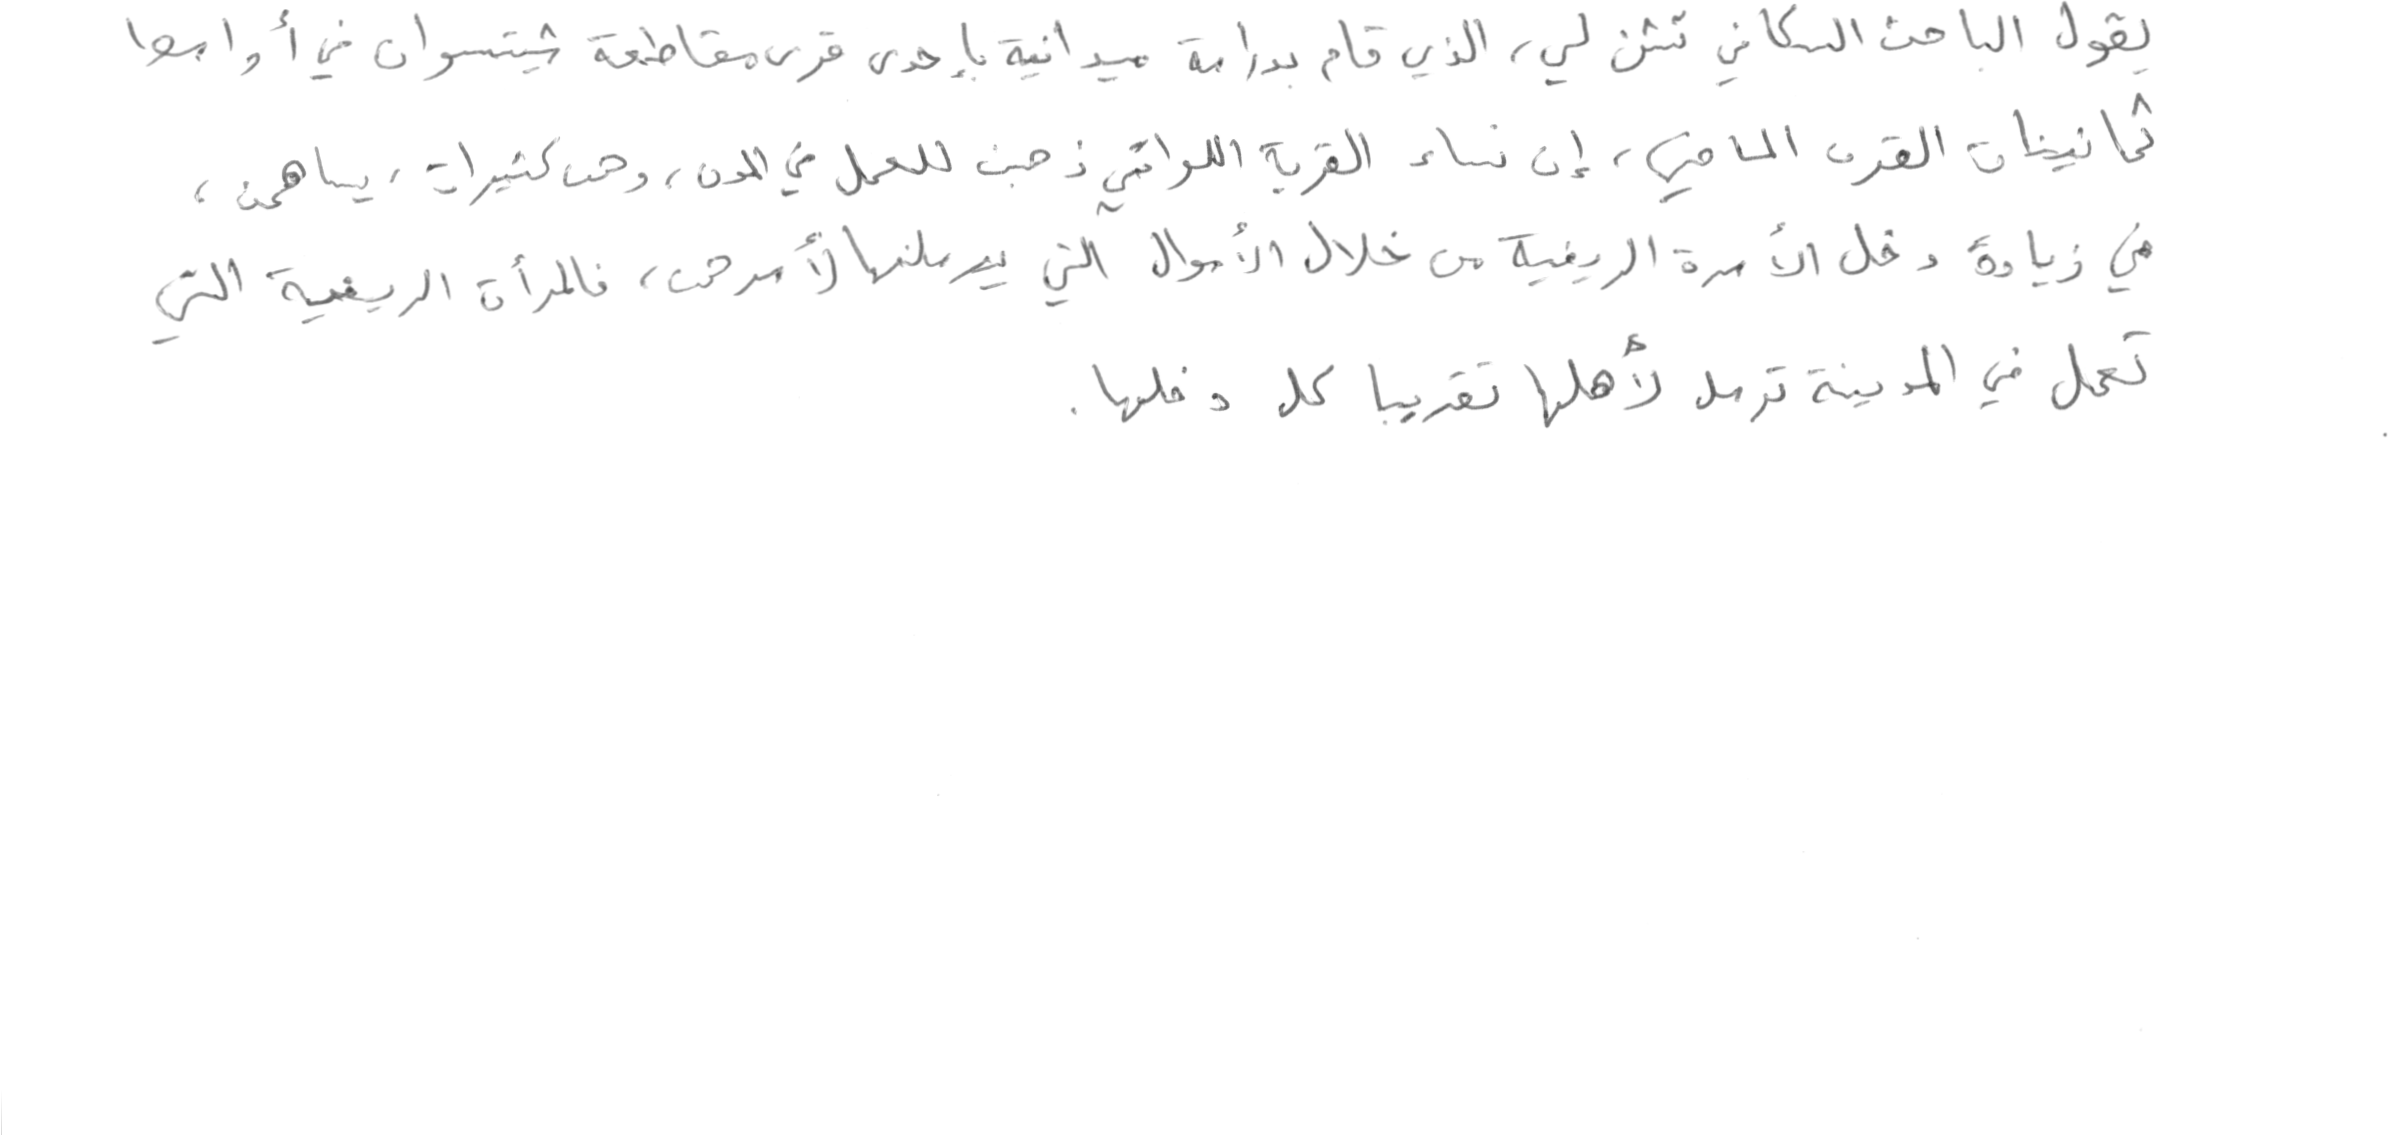 يقول الباحث السكاني تشن لي، الذي قام بدراسة ميدانية بإحدى قرى مقاطعة شيتسوان في أواسط
ثمانينات القرن الماضي، إن نساء القرية اللواتي ذهبن للعمل في المدن، وهن كثيرات، يساهمن،
في زيادة دخل الأسرة الريفية من خلال الأموال التي يرسلنها لأسرهن، فالمرأة الريفية التي
تعمل في المدينة ترسل لأهلها تقريبا كل دخلها.